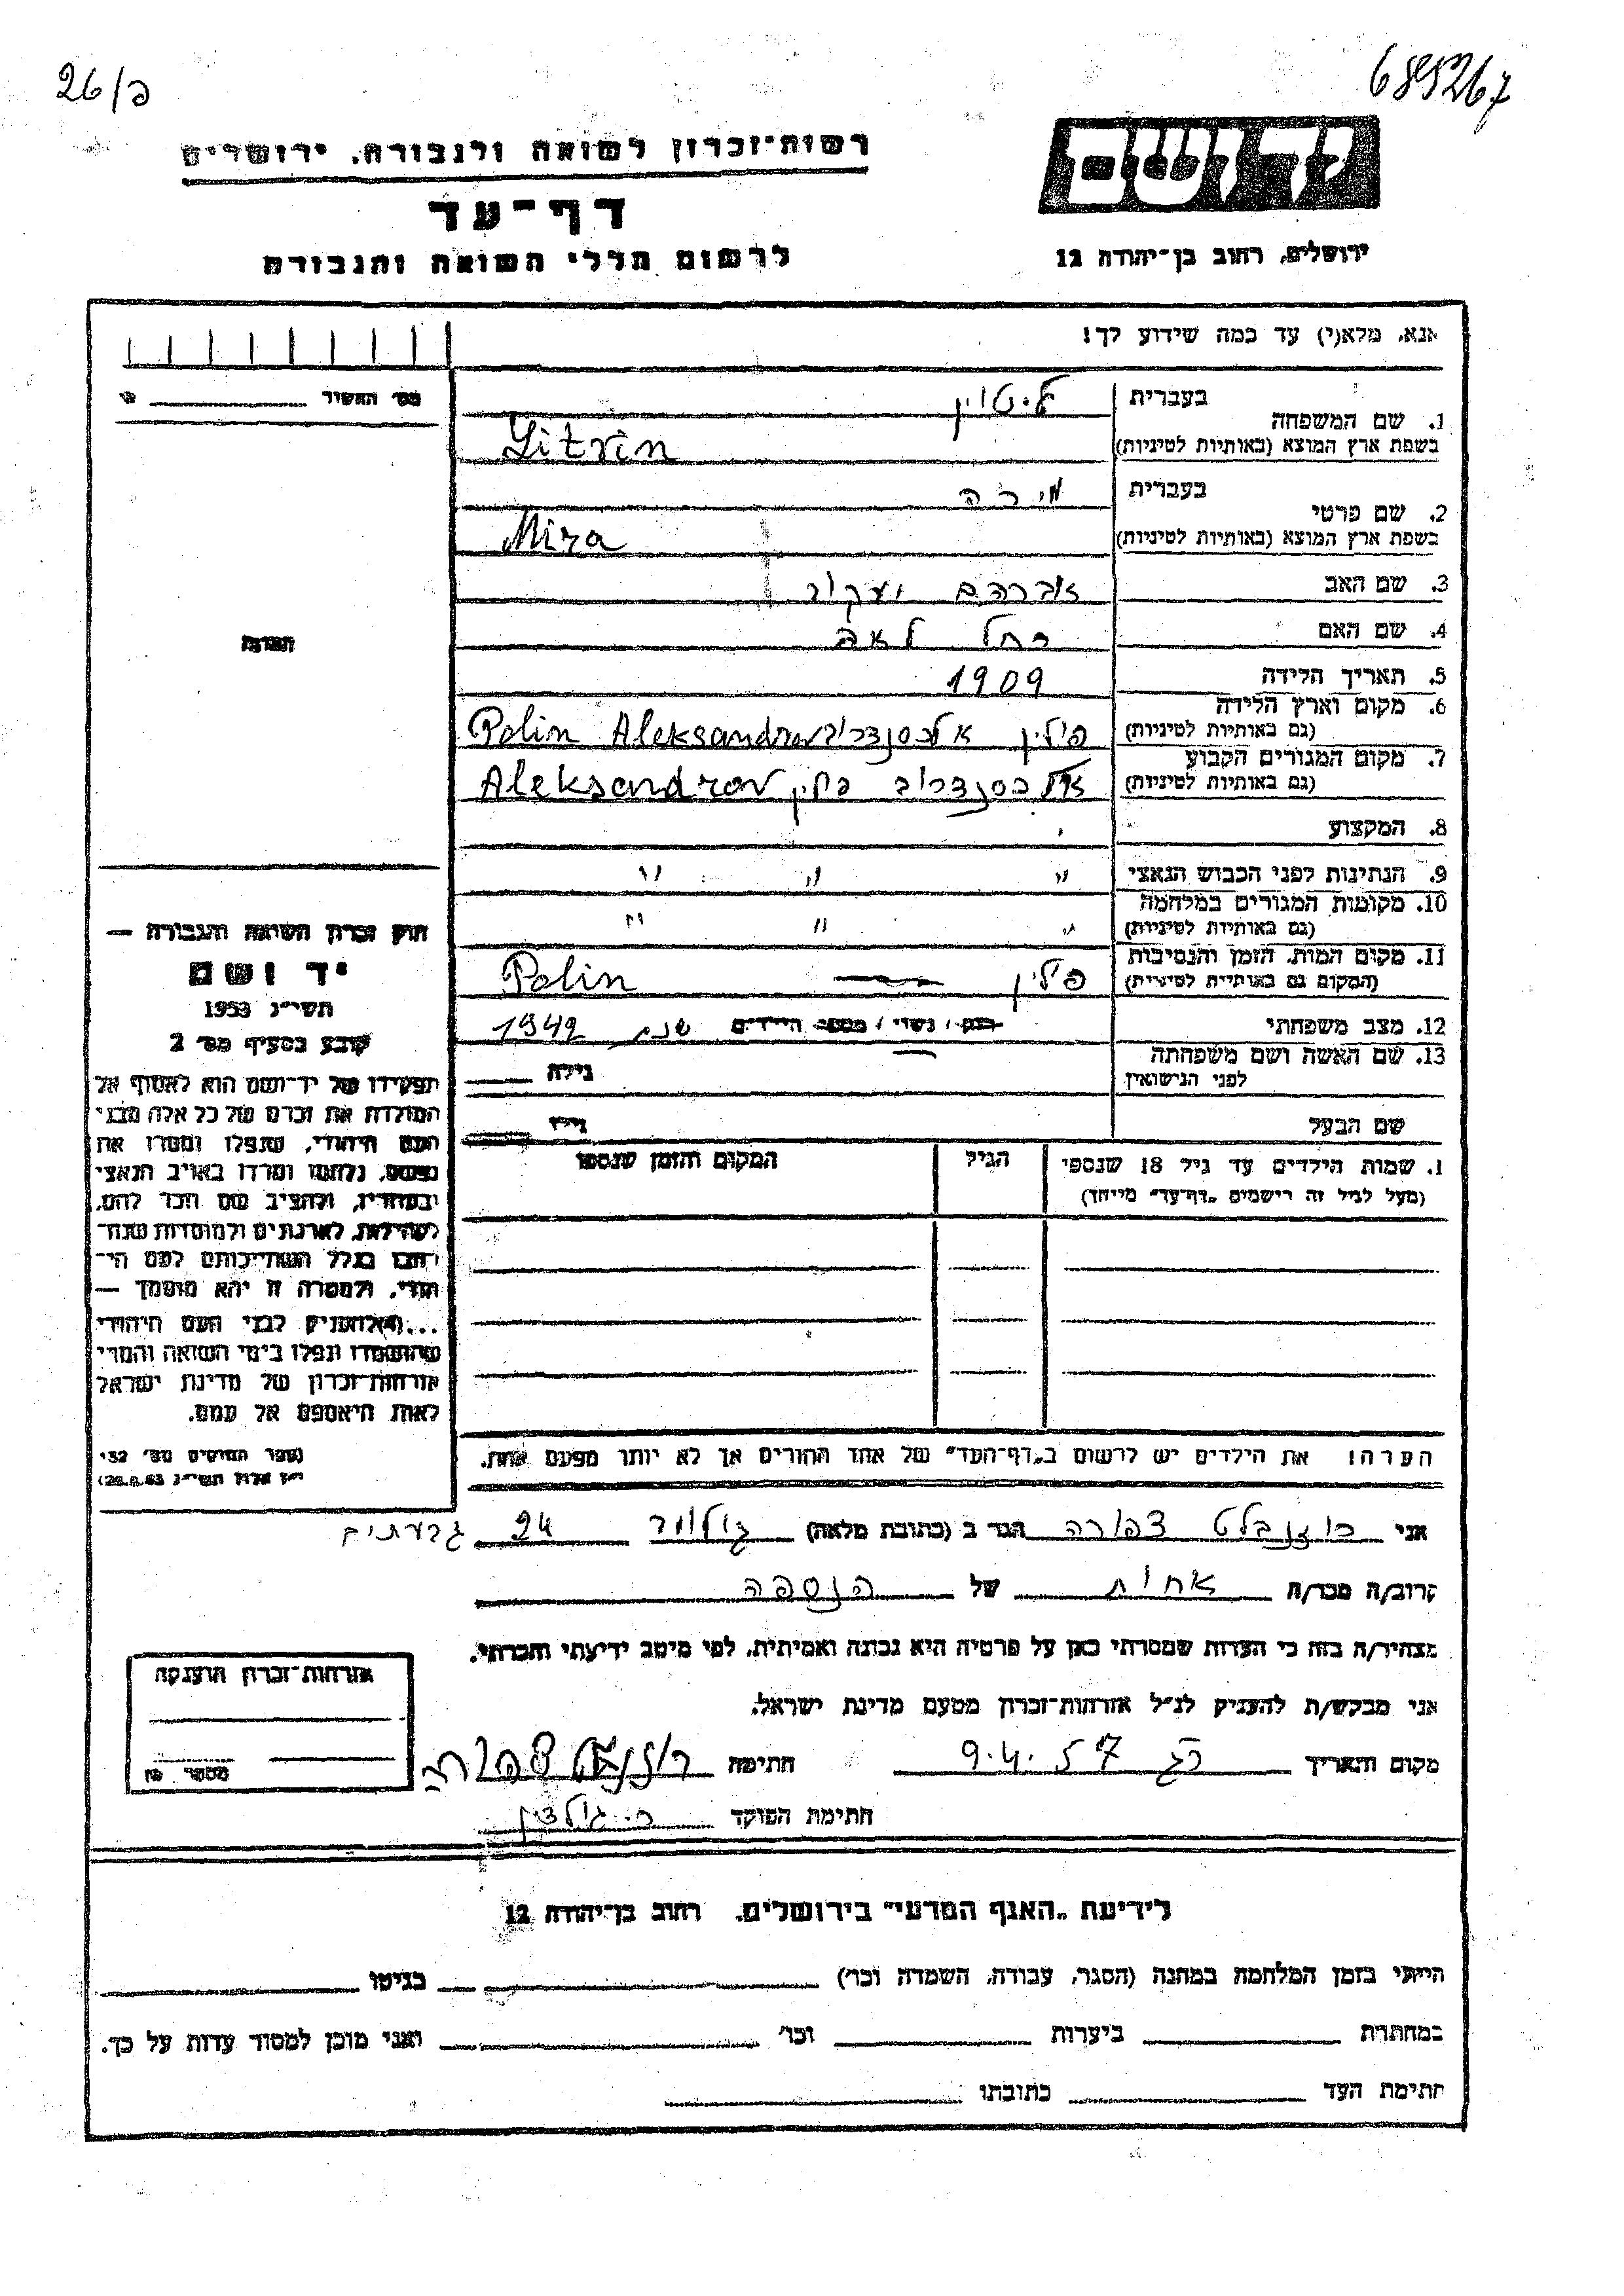 26/פ
689267
רשות־זכרון לשואה ולגבורה, ירושלים
יד ושם
דף־עד
לרשום חללי השואה והגבורה
ירושלים, רחוב בן־יהודה 12
אנא, מלא(י) עד כמה שידוע לך!
מס׳ האשור
1. שם המשפחה
בעברית ליטוין
בשפת ארץ המוצא (באותיות לטיניות) Litvin
2. שם פרטי
בעברית מירה
בשפת ארץ המוצא (באותיות לטיניות) Mira
3. שם האב אברהם יעקוב
4. שם האם רחל לאה
5. תאריך הלידה 1909
6. מקום וארץ הלידה
(גם באותיות לטיניות) פולין אלכסנדרוב Polin Aleksandrov
7. מקום המגורים הקבוע
(גם באותיות לטיניות) אלכסנדרוב פולין Aleksandrov
8. המקצוע
9. הנתינות לפני הכבוש הנאצי " " "
10. מקומות המגורים במלחמה
(גם באותיות לטיניות) " " "
11. מקום המות, הזמן והנסיבות
(המקום גם באותיות לטיניות) פולין — Polin
12. מצב משפחתי רווק / נשוי / מספר הילדים שנת 1942
13. שם האשה ושם משפחתה
לפני הנישואין גילה
שם הבעל גילו
1. שמות הילדים עד גיל 18 שנספו
(מעל לגיל זה רישמים „דף־עד" מיוחד)
הגיל
המקום והזמן שנספו
הערה! את הילדים יש לרשום ב„דף־העד" של אחד ההורים אך לא יותר מפעם אחת.
תמונה
חוק זכרון השואה והגבורה —
יד ושם
תשי״ג 1953
קובע בסעיף מס׳ 2
תפקידו של יד־ושם הוא לאסוף אל
המולדת את זכרם של כל אלה מבני
העם היהודי, שנפלו ומסרו את
נפשם, נלחמו ומרדו באויב הנאצי
ובעוזריו, ולהציב שם וזכר להם,
לקהילות, לארגונים ולמוסדות שנח־
רבו בגלל השתייכותם לעם הי־
הודי, ולמטרה זו יהא מוסמך —
...(4) להעניק לבני העם היהודי
שהושמדו ונפלו בימי השואה והמרי
אזרחות־זכרון של מדינת ישראל
לאות היאספם אל עמם.
(ספר החוקים מס׳ 132
י״ז אלול תשי״ג 28.8.53)
אני רוזנבלט צפורה הגר ב (כתובת מלאה) 24 גבעתים
קרוב/ה מכר/ה אחות של הנספה
מצהיר/ה בזה כי העדות שמסרתי כאן על פרטיה היא נכונה ואמיתית, לפי מיטב ידיעתי והכרתי.
אני מבקש/ת להעניק לנ״ל אזרחות־זכרון מטעם מדינת ישראל.
מקום והתאריך רג 9.4.57 חתימה
חתימת הפוקד
אזרחות־זכרון הוענקה
מספר
לידיעת „האגף המדעי" בירושלים, רחוב בן־יהודה 12
הייתי בזמן המלחמה במחנה (הסגר, עבודה, השמדה וכו׳) בגיטו
במחתרת ביערות וכו׳ ואני מוכן למסור עדות על כך.
חתימת העד כתובתו